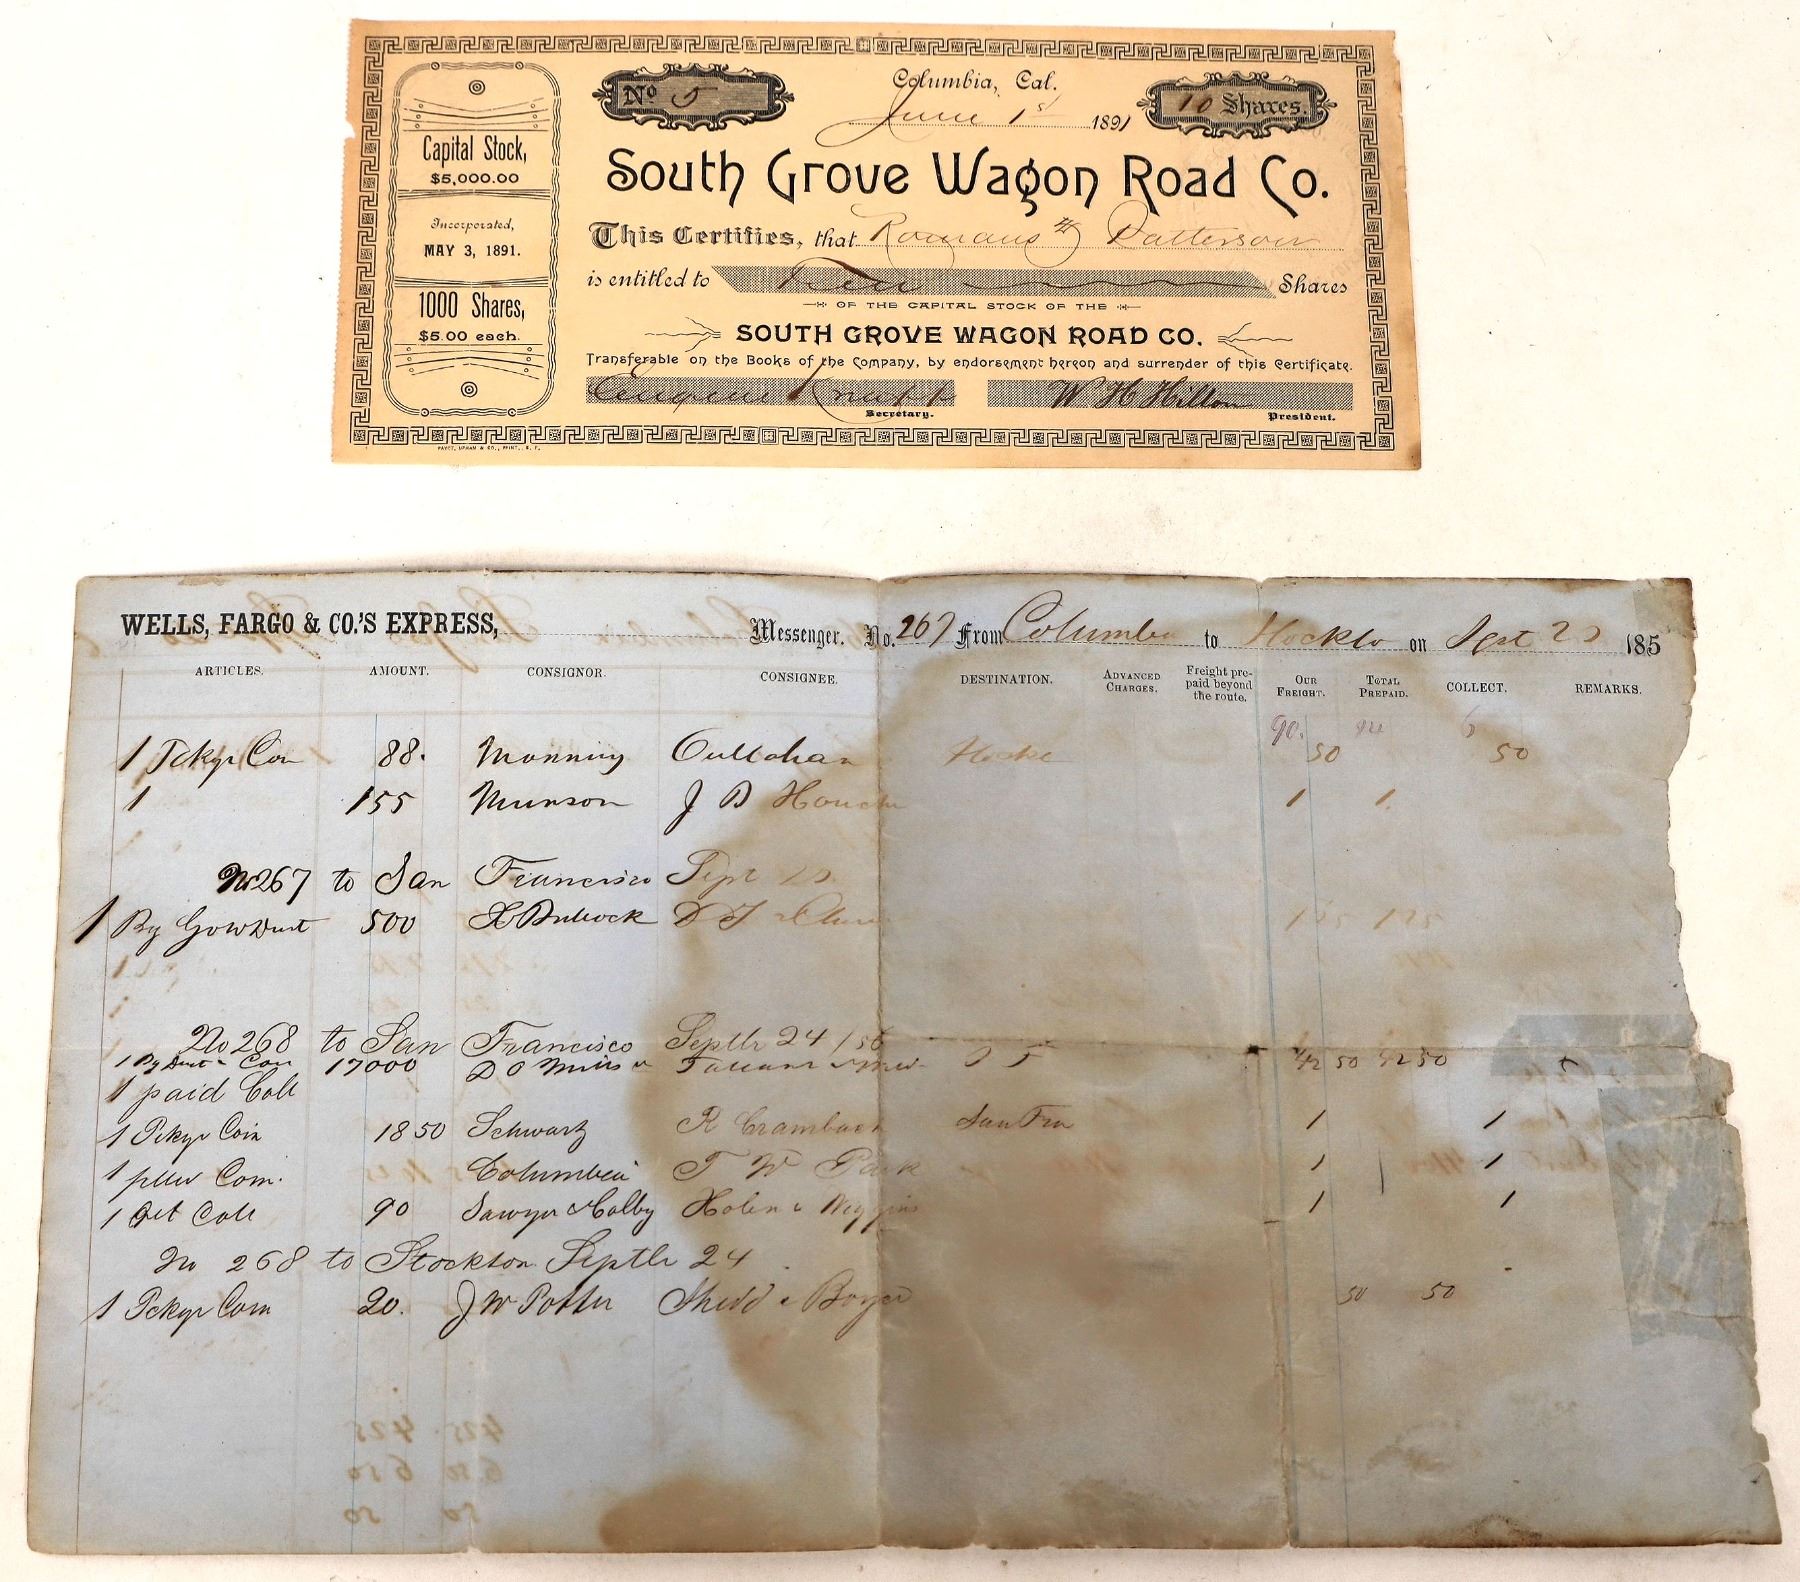 No 5
Columbia, Cal.
June 1st 1891
10 Shares.
Capital Stock,
$5,000.00
Incorporated,
MAY 3, 1891.
1000 Shares,
$5.00 each.
South Grove Wagon Road Co.
This Certifies, that Romans Patterson
is entitled to Ten Shares
OF THE CAPITAL STOCK OF THE
SOUTH GROVE WAGON ROAD CO.
Transferable on the Books of the Company, by endorsement hereon and surrender of this Certificate.
Eugene Knapp W H Hilton
Secretary. President.
PAYOT, UPHAM & CO., PRINT., S. F.
WELLS, FARGO & CO.'S EXPRESS, Messenger. No. 267 From Columbia to Stockto on Sept 20 185
ARTICLES. AMOUNT. CONSIGNOR. CONSIGNEE. DESTINATION. ADVANCED CHARGES. Freight pre-paid beyond the route. OUR FREIGHT. TOTAL PREPAID. COLLECT. REMARKS.
1 Pckge Coin 88. Manning Cullahan 50 50
1 155 Munson J B Houche 1 1
No 267 to San Francisco Sept 20
1 500 125 125
No 268 to San Francisco Septbr 24 / 56
1 Bg Dust & Coin 17000 D O Mills 42 50 42 50
1 paid Coll
1 Pckge Coin 18 50 Schwartz R Crambach San Fra 1 1
1 Columbia T W Park 1 1
1 Coll 90 Sawyer & Colby & Wiggins 1 1
No 268 to Stockton Septbr 24
1 Pckge Coin 20. J W Potter Shedd & Boyer 50 50